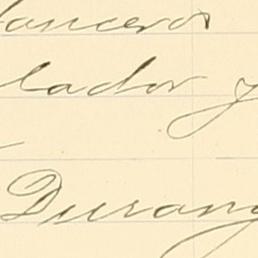 lanceros
lador y
Durang